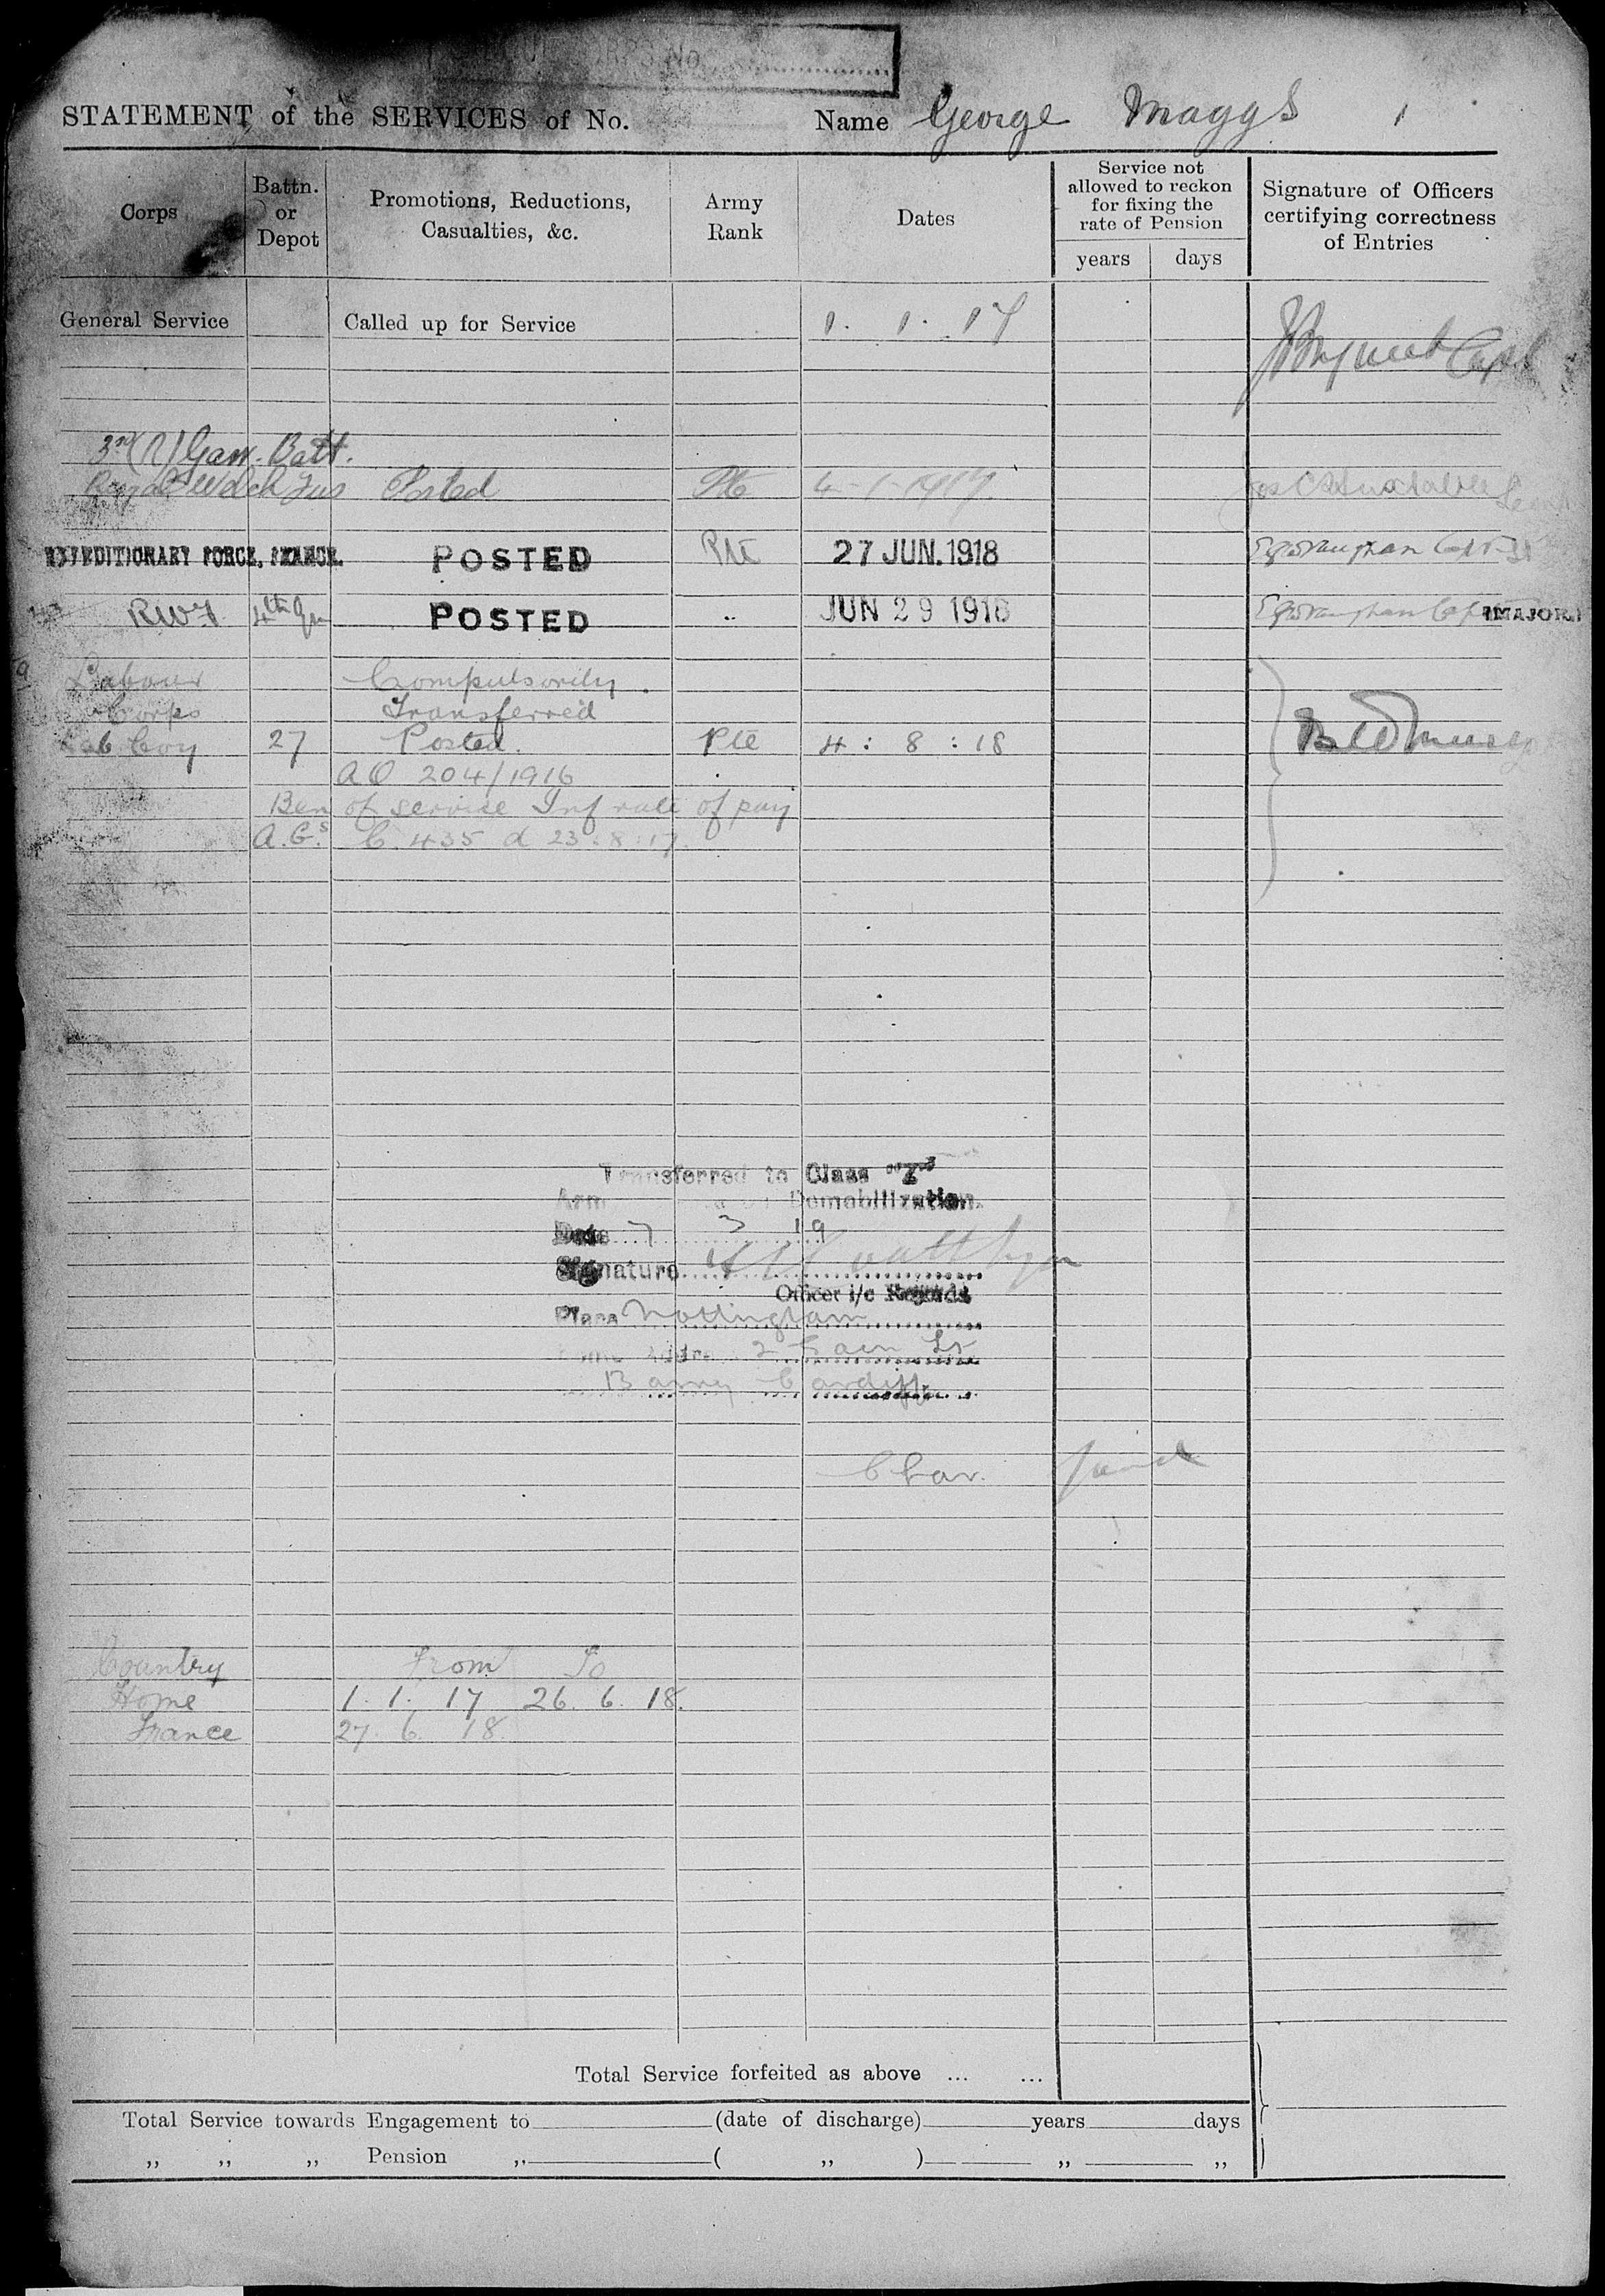 CORPS No.
STATEMENT of the SERVICES of No. Name George Maggs
Corps Battn. or Depot Promotions, Reductions, Casualties, &c. Army Rank Dates Service not allowed to reckon for fixing the rate of Pension years days Signature of Officers certifying correctness of Entries
General Service Called up for Service 1. 1. 17 Capt
3rd (R) Garr. Batt.
Royal Welch Fus Posted Pte 4-1-1917
EXPEDITIONARY FORCE, FRANCE. POSTED Pte 27 JUN. 1918 Vaughan Capt
RWF 4th Gn POSTED " JUN 29 1918 Vaughan Capt (MAJOR)
Labour Compulsorily
Corps Transferred
Lab Coy 27 Posted. Pte 4 : 8 : 18
AO 204/1916
Ben of service Inf rate of pay
A.G.s C. 435 d 23.8.17.
Transferred to Class "Z"
Demobilization.
Date 7 3 19
Signature
Officer i/c Records
Place Nottingham
2 St
Barry Cardiff
Char.
Country From To
Home 1. 1. 17 26. 6. 18.
France 27. 6. 18.
Total Service forfeited as above ... ...
Total Service towards Engagement to (date of discharge) years days
„ „ „ Pension „ ( „ ) „ „